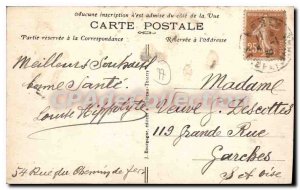 Aucune inscription n'est admise du côté de la Vue
CARTE POSTALE
Partie réservée à la Correspondance
Réservée à l'Adresse
Meilleurs Souhaits
bonne Santé
Louise Hippolyte
54 Rue du Chemin de fer
Madame
Veuve Lescottes
119 Grande Rue
Garches
S et Oise